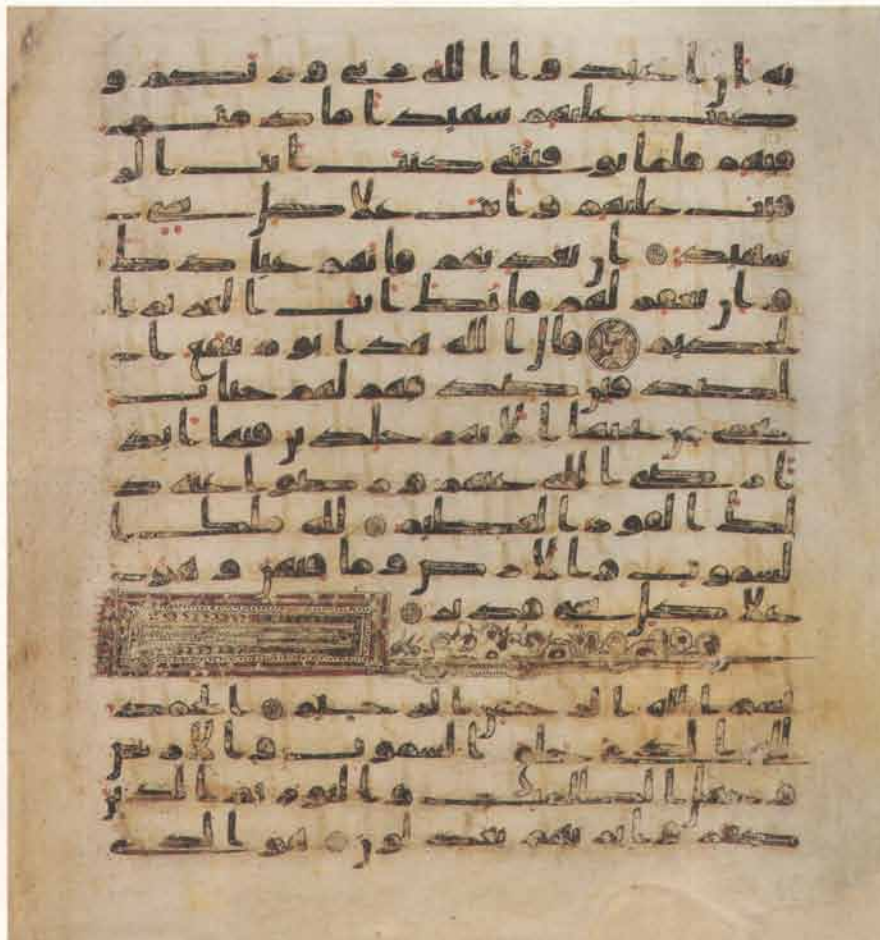 به ان اعبدوا الله ربي وربكم و
كنت عليهم شهيدا ما دمت
فيهم فلما توفيتني كنت انت الر
قيب عليهم وانت علا كل شي
شهيد ان تعذبهم فانهم عبادك
وان تغفر لهم فانك انت العزيز ا
لحكيم قال الله هذا يوم ينفع ا
لصدقين صدقهم لهم جنات
تجري من تحتها الانهر خلدين فيها ابد
ا رضي الله عنهم ورضوا عنه ذ
لك الفوز العظيم لله ملك ا
لسموت والارض وما فيهن وهو
علا كل شي قدير
بسم الله الرحمن الرحيم الحمد
لله الذي خلق السموت والارض
وجعل الظلمت والنور ثم الذين
كفروا بربهم يعدلون هو الذي